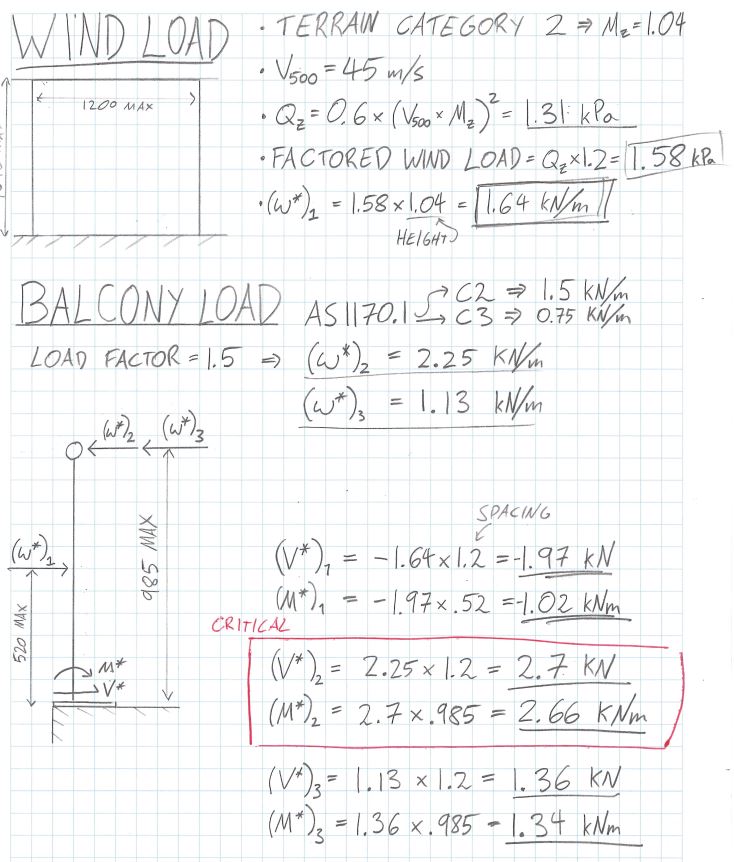 WIND LOAD
• TERRAIN CATEGORY 2 ⇒ Mz = 1.04
• V500 = 45 m/s
1200 MAX
• Qz = 0.6 × (V500 × Mz)² = 1.31 kPa
• FACTORED WIND LOAD = Qz × 1.2 = 1.58 kPa
• (w*)1 = 1.58 × 1.04 = 1.64 kN/m
HEIGHT
BALCONY LOAD
AS1170.1 → C2 ⇒ 1.5 kN/m
→ C3 ⇒ 0.75 KN/m
LOAD FACTOR = 1.5 ⇒ (w*)2 = 2.25 KN/m
(w*)3 = 1.13 kN/m
(w*)2 (w*)3
985 MAX
(w*)1
520 MAX
M*
V*
SPACING
(V*)1 = -1.64 × 1.2 = -1.97 kN
(M*)1 = -1.97 × .52 = -1.02 kNm
CRITICAL
(V*)2 = 2.25 × 1.2 = 2.7 KN
(M*)2 = 2.7 × .985 = 2.66 KNm
(V*)3 = 1.13 × 1.2 = 1.36 KN
(M*)3 = 1.36 × .985 = 1.34 kNm